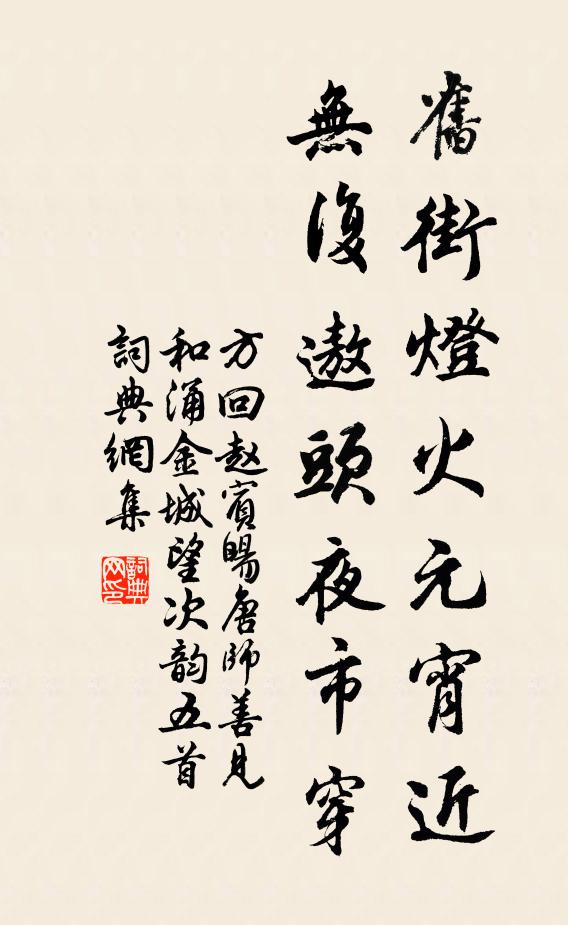 舊街燈火元宵近
無復遨頭夜市穿
方回赵賓暘唐師善見
和涌金城望次韵五首
詞典網集
詞典网印